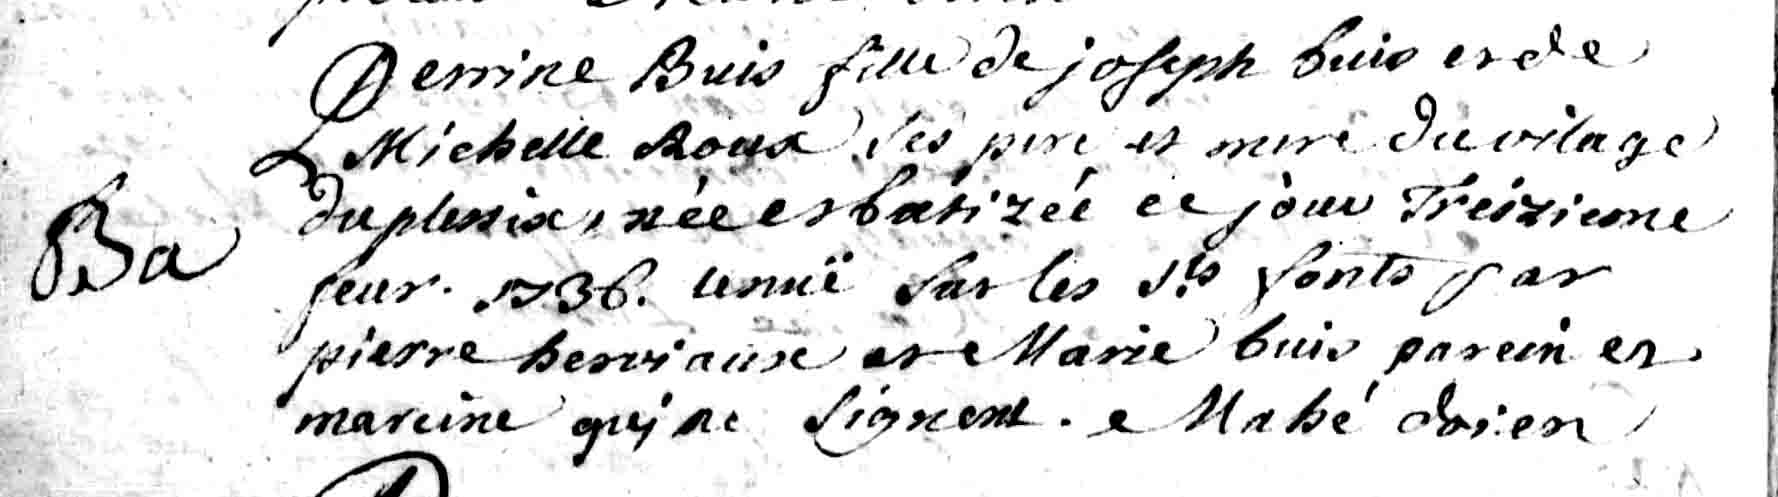 Perrine Buis fille de joseph buis et de
Michelle Roux ses pere et mere du vilage
du plessix, née et batizée ce jour Treizieme
Ba
feur. 1736. tenuë sur les Sts fonts par
pierre herviaux et Marie buis parein et
mareine qui ne signent. Mahé doien